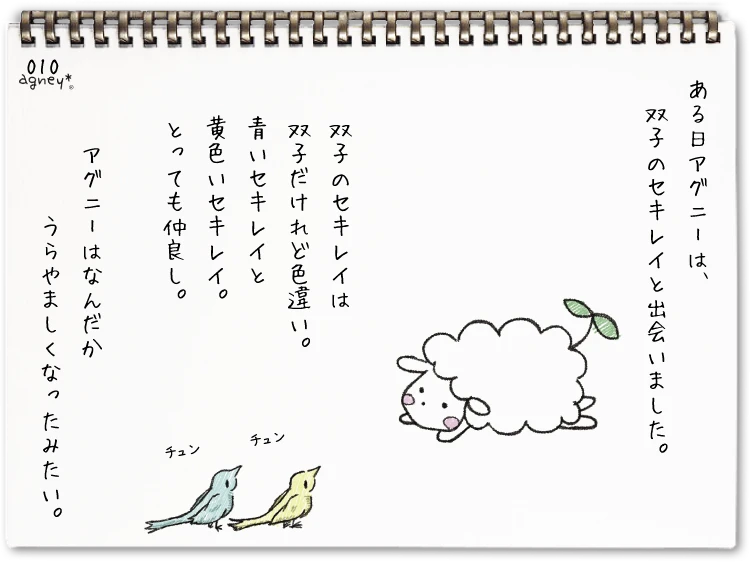 010
agney*®
ある日アグニーは、
双子のセキレイと出会いました。
双子のセキレイは
双子だけれど色違い。
青いセキレイと
黄色いセキレイ。
とっても仲良し。
アグニーはなんだか
うらやましくなったみたい。
チュン
チュン